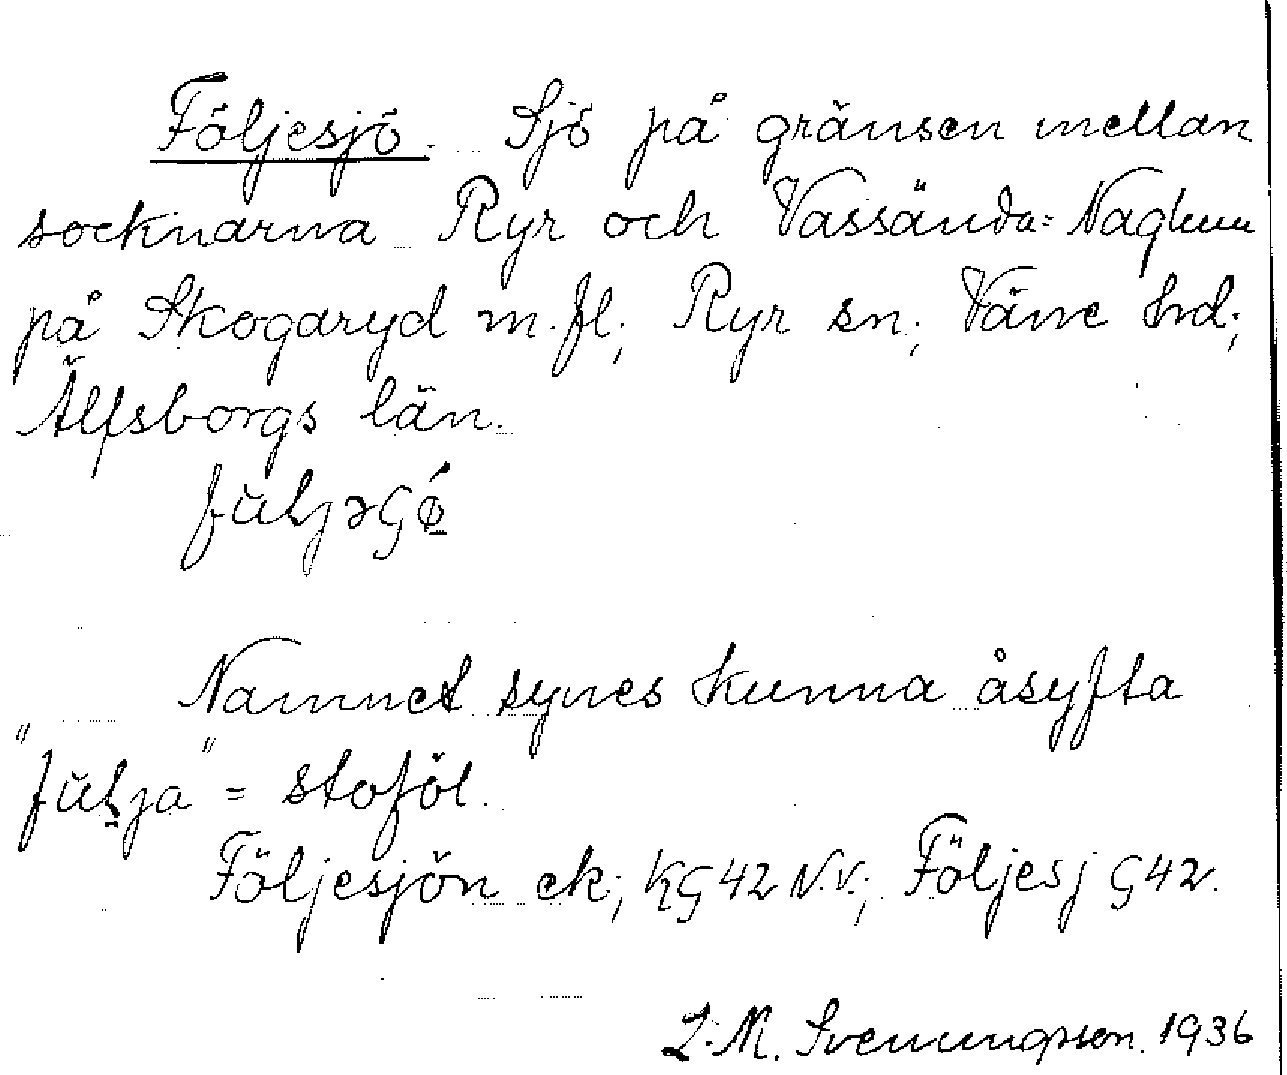 Följesjö. Sjö på gränsen mellan
socknarna Ryr och Vassända=Naglum
på Skogaryd m.fl; Ryr sn; Väne hd;
Älfsborgs län.
Namnet synes kunna åsyfta
= stoföl.
Följesjön ek; KG42 N.V.; Följesj G42.
L.M. Svenungsson. 1936